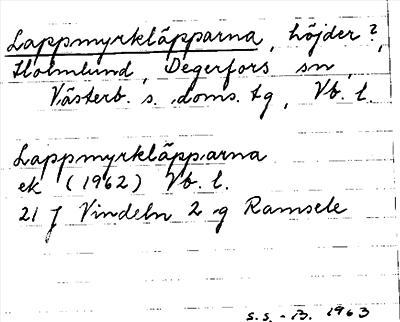 Lappmyrkläpparna, höjder?,
Holmlund, Degerfors sn,
Västerb. s. doms. tg, Vb. l.
Lappmyrkläpparna
ek (1962) Vb. l.
21 J Vindeln 2 g Ramsele
s.s. - B. 1963